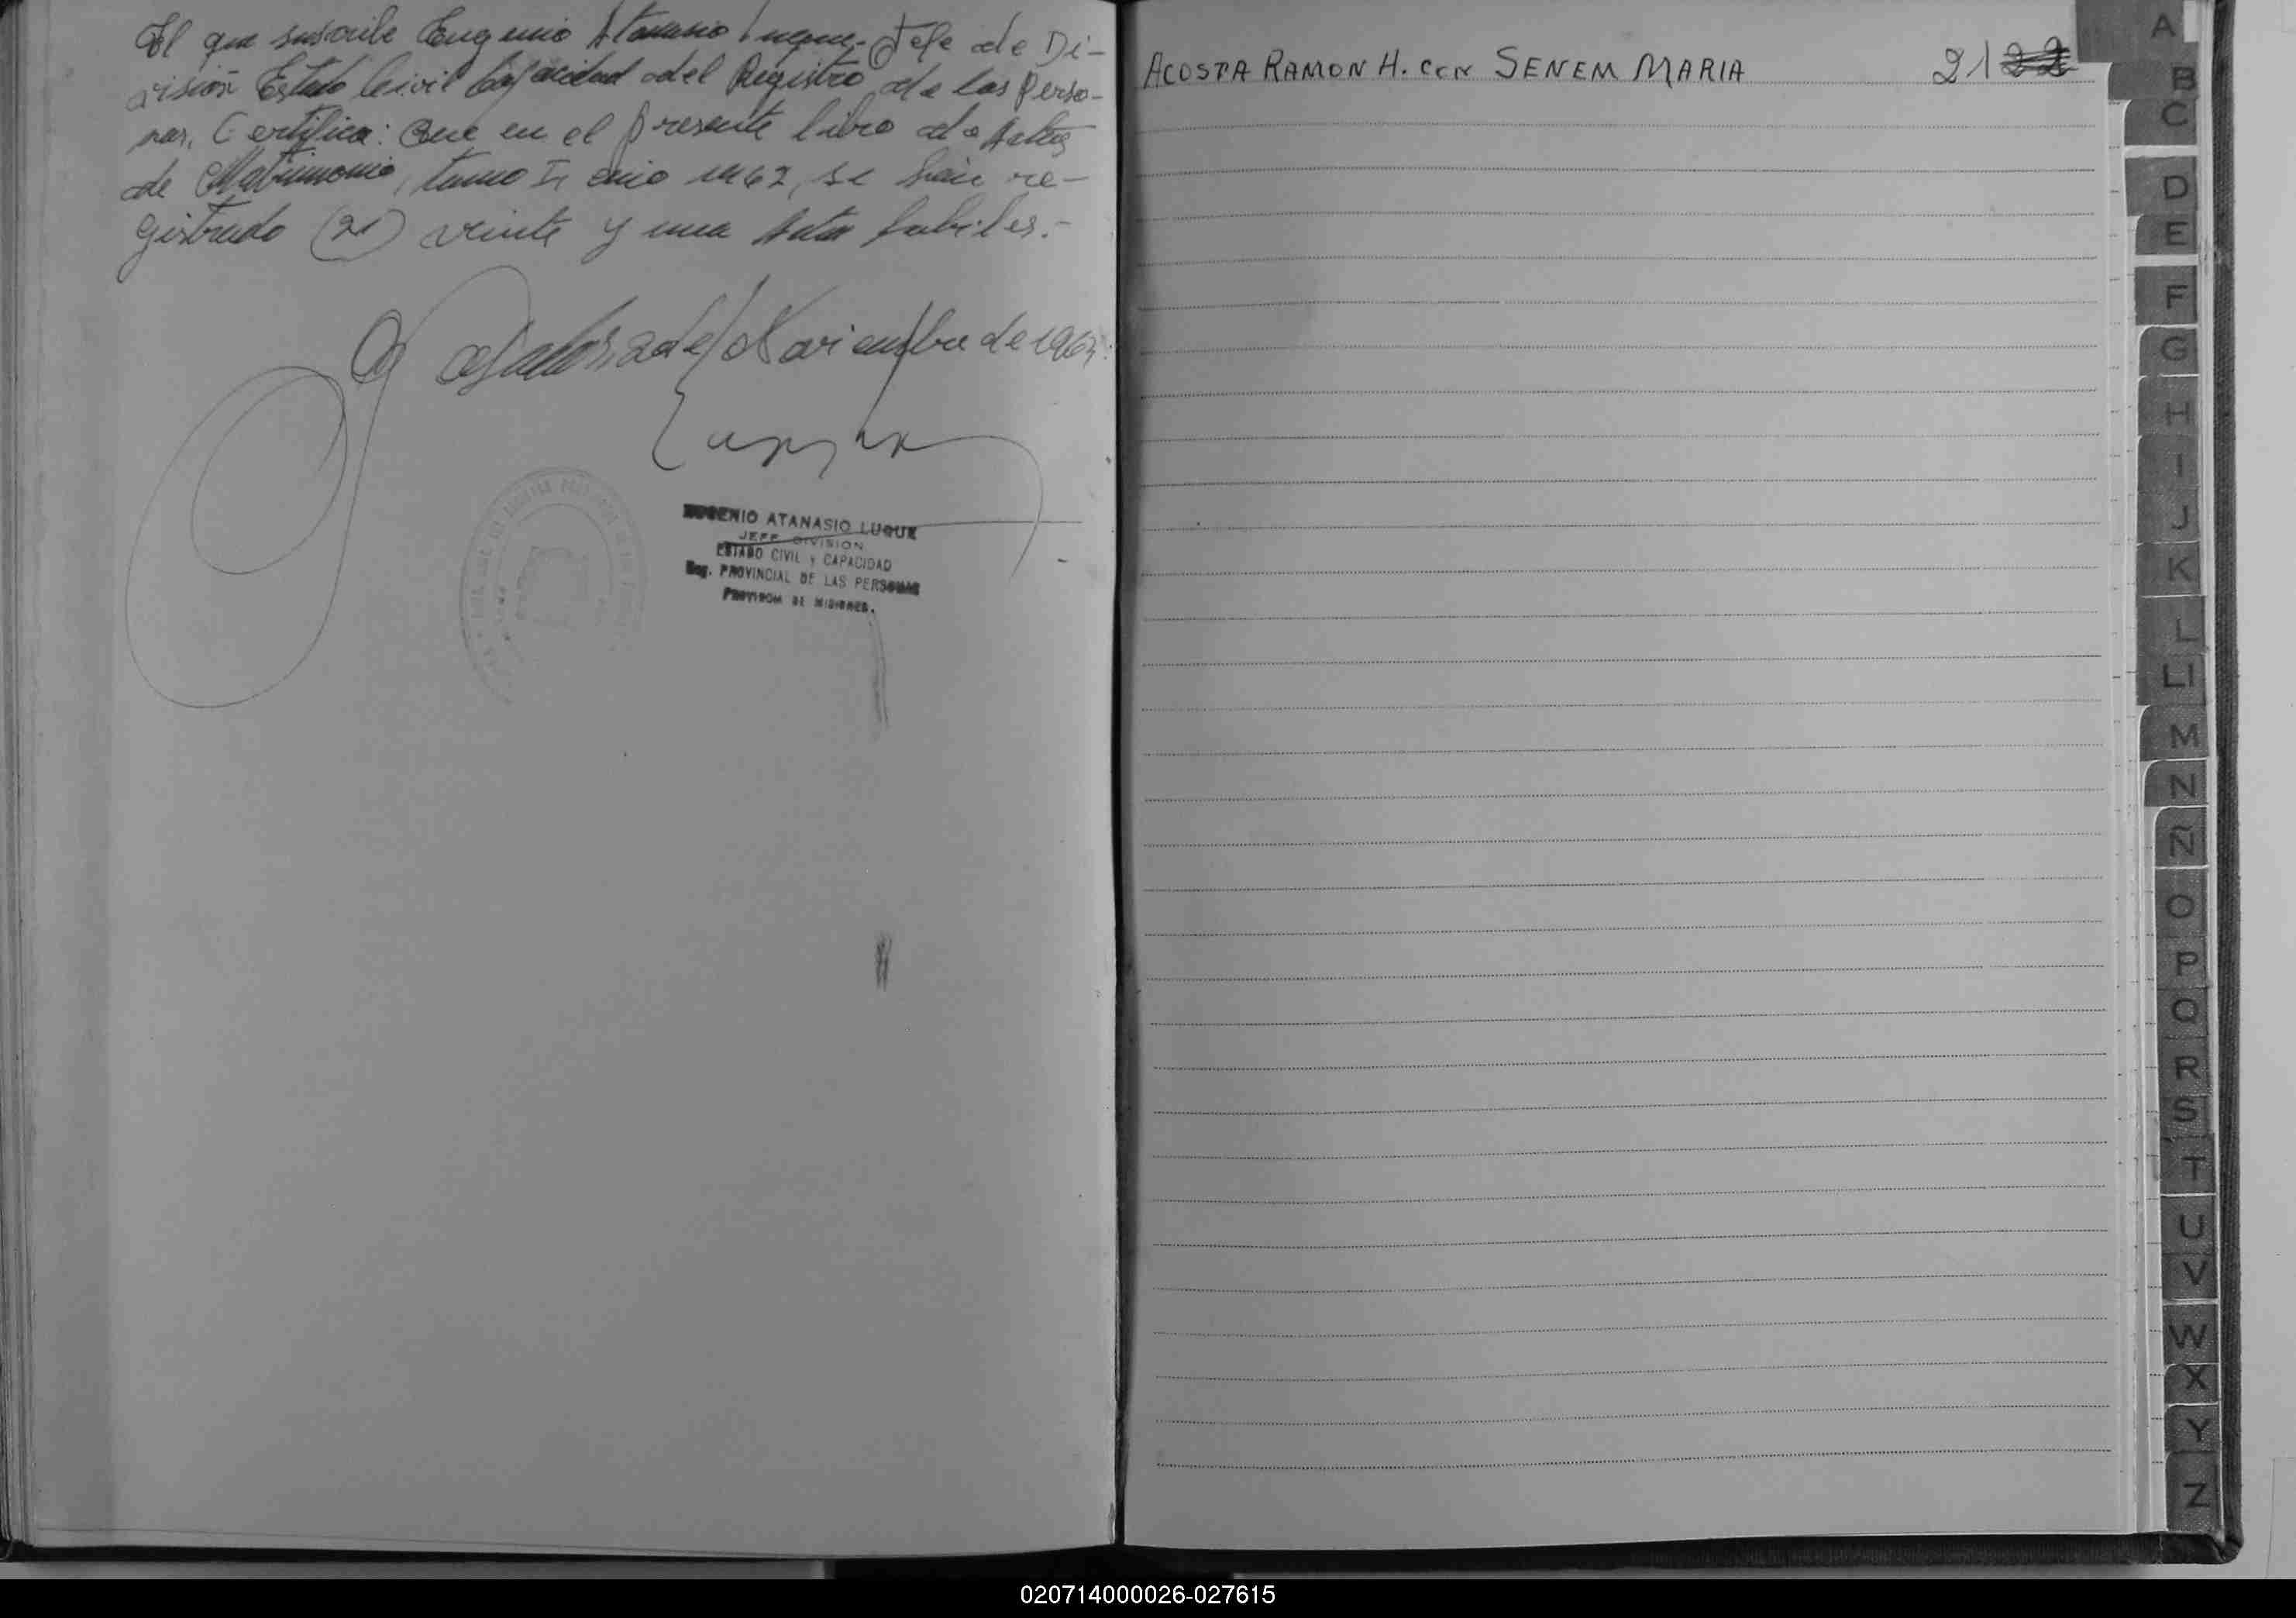 El que suscribe Eugenio Atanasio Luque, Jefe de Di-
visión Estado Civil Capacidad del Registro de las Perso-
nas, Certifica: Que en el presente libro de Actas
de Matrimonio, tomo I, año 1962, se han re-
gistrado (21) veinte y una Acta
de Noviembre de
EUGENIO ATANASIO LUQUE
JEFE DIVISION
ESTADO CIVIL y CAPACIDAD
Reg. PROVINCIAL DE LAS PERSONAS
PROVINCIA DE MISIONES.
ACOSTA RAMON H. con SENEM MARIA 21
A
B
C
D
E
F
G
H
I
J
K
L
Ll
M
N
Ñ
O
P
Q
R
S
T
U
V
W
X
Y
Z
020714000026-027615